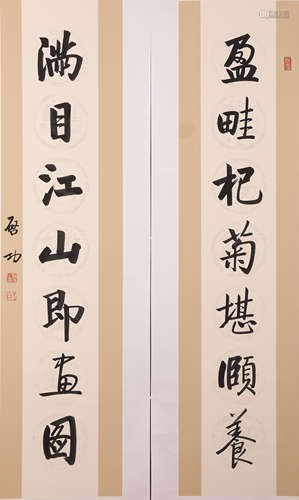 盈畦杞菊堪頤養
滿目江山即畫圖
啓功